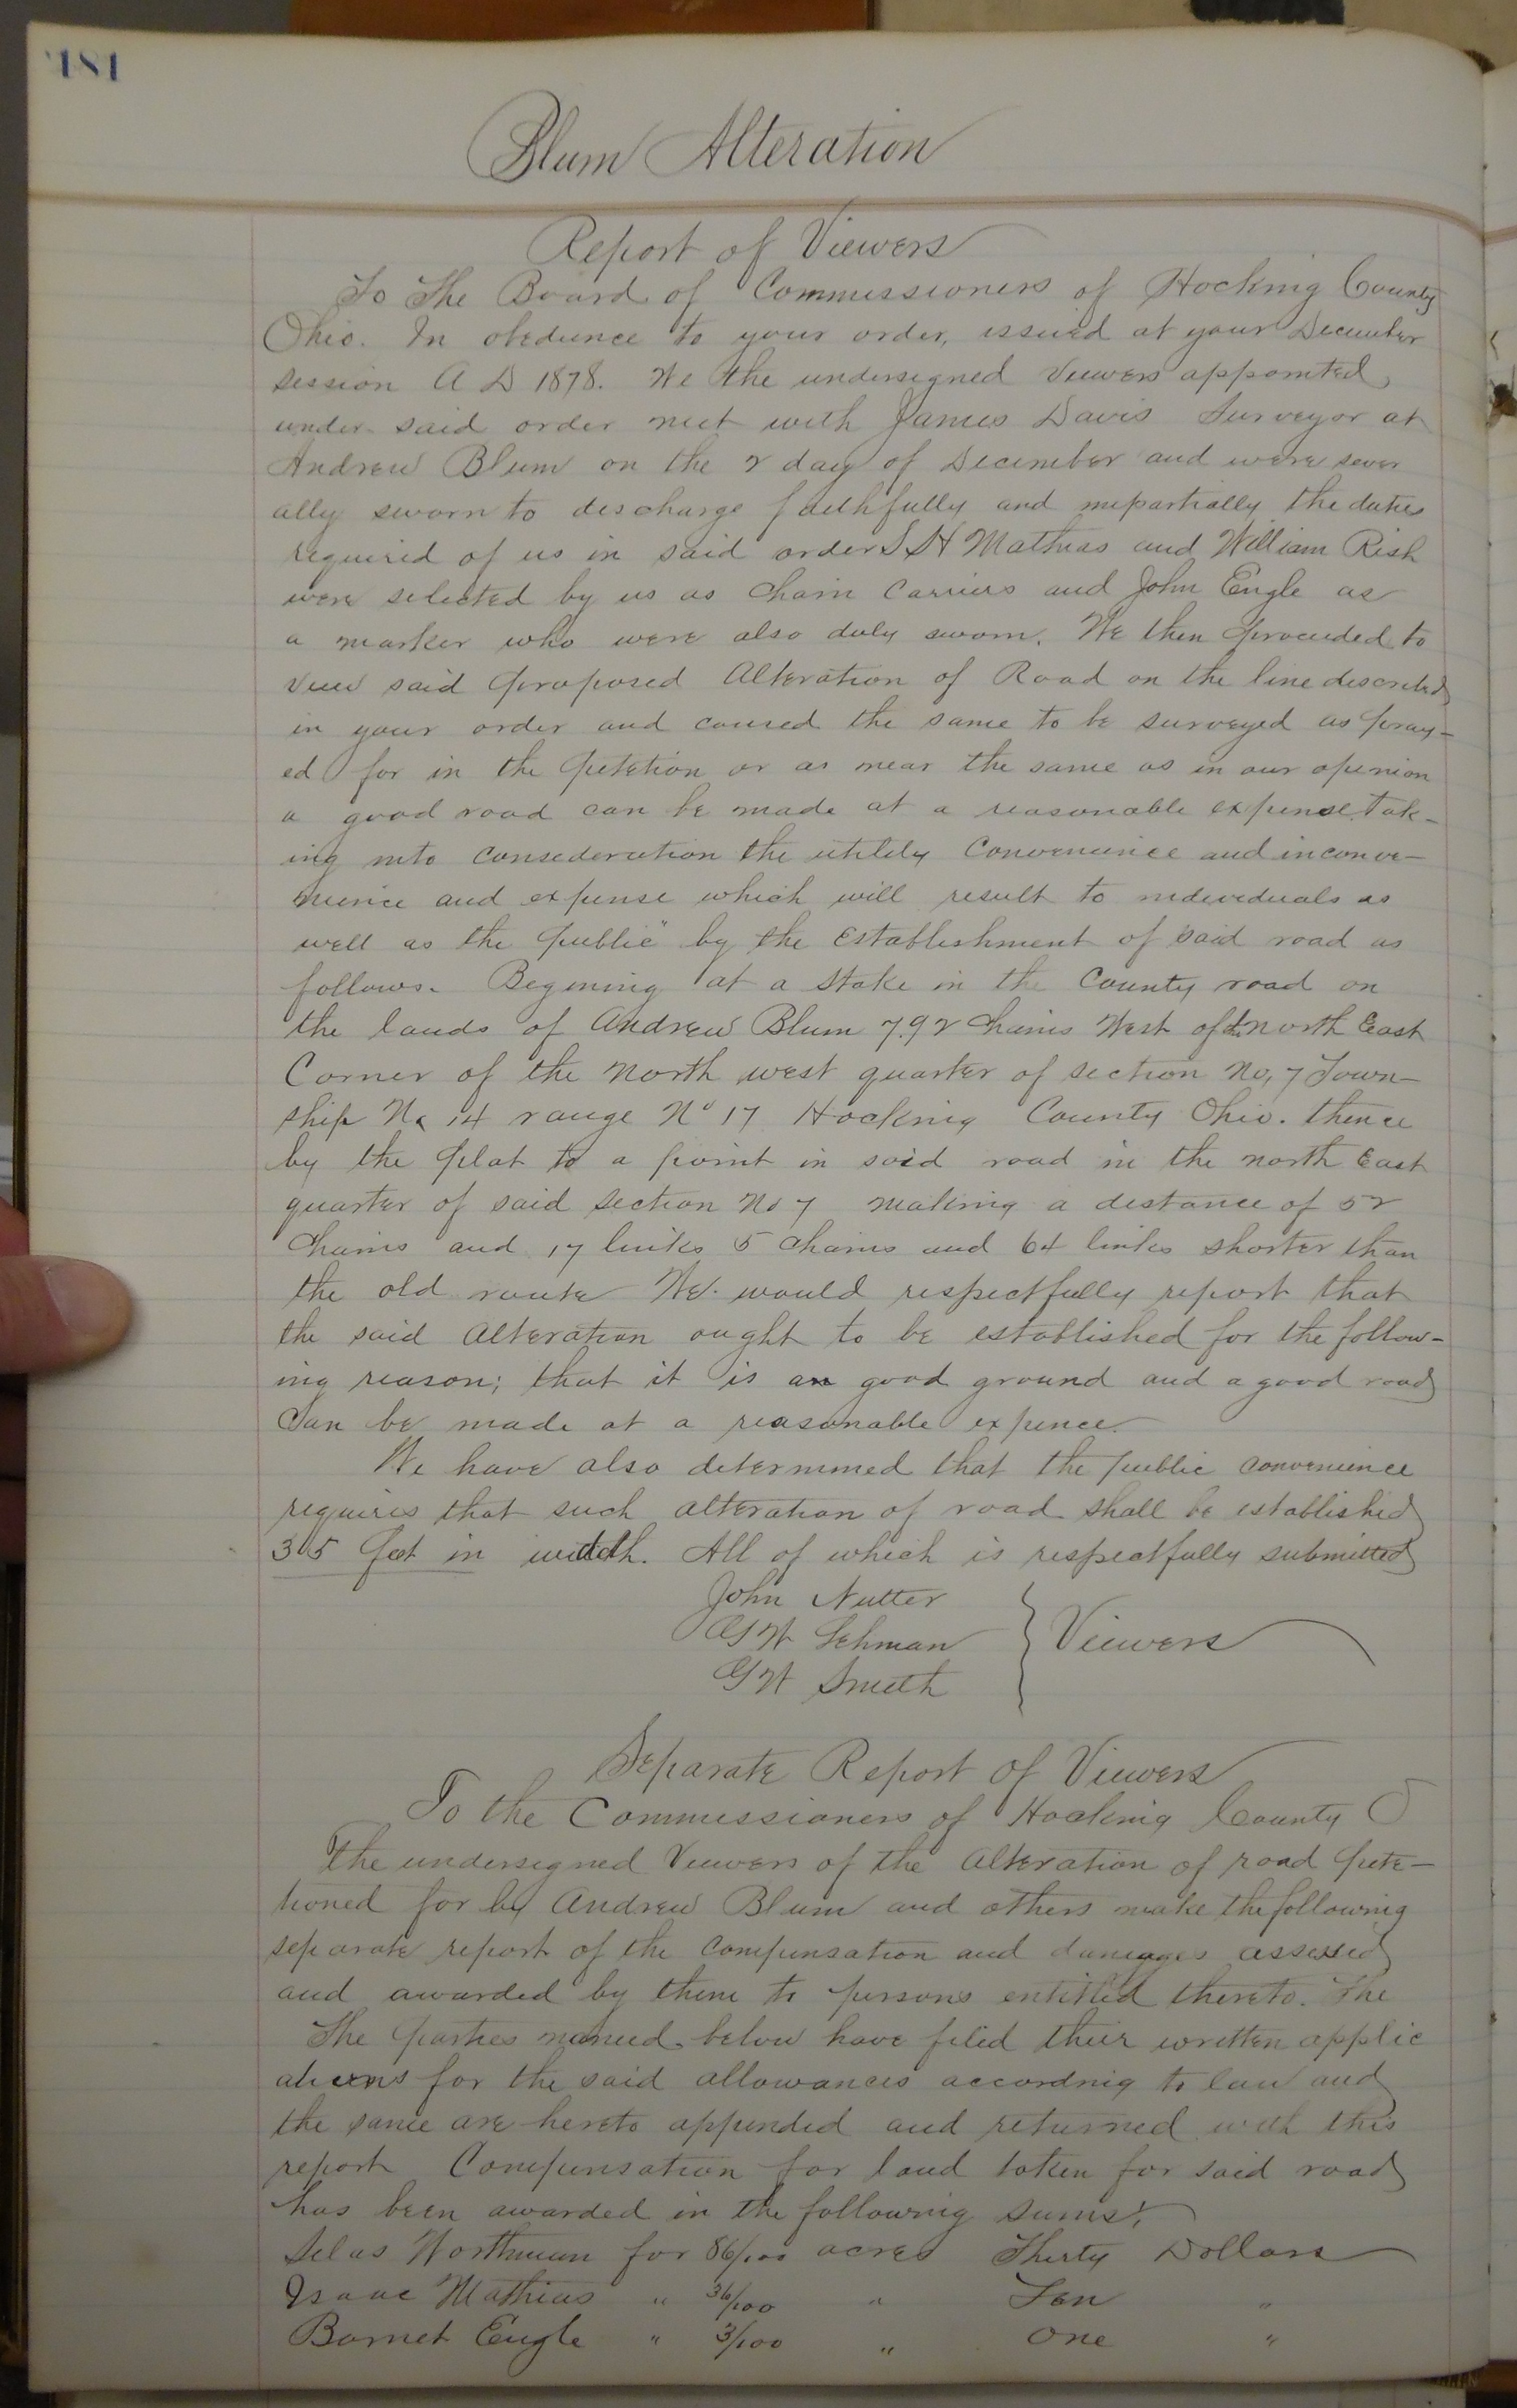 181
Blum Alteration
Report of Viewers
To The Board of Commissioners of Hocking County
Ohio. In obedience to your order, issued at your December
session A D 1878. We the undersigned Viewers appointed
under said order met with James Davis Surveyor at
Andrew Blum on the 2 day of December and were sever
ally sworn to discharge faithfully and impartially the duties
required of us in said order S H Mathias and William Rish
were selected by us as chain carriers and John Engle as
a marker who were also duly sworn. We then proceeded to
view said proposed Alteration of Road on the line described
in your order and caused the same to be surveyed as pray-
ed for in the petition or as near the same as in our opinion
a good road can be made at a reasonable expense tak-
ing into consideration the utility convenience and inconve-
nience and expense which will result to individuals as
well as the public by the Establishment of said road as
follows. Begining at a Stake in the County road on
the lands of Andrew Blum 7.92 chains West of the north East
Corner of the North west quarter of section No, 7 Town-
ship No 14 range No 17 Hocking County Ohio. thence
by the plat to a point in said road in the north East
quarter of said section No 7 making a distance of 52
chains and 17 links 5 chains and 64 links shorter than
the old route We would respectfully report that
the said Alteration ought to be established for the follow-
ing reason; that it is an good ground and a good road
can be made at a reasonable expence.
We have also determined that the public convenience
requires that such alteration of road shall be established
35 feet in width. All of which is respectfully submitted
John Nutter
G W Lehman } Viewers
G W Smith
Separate Report of Viewers
To the Commissioners of Hocking County O
The undersigned Viewers of the Alteration of road peti-
tioned for by Andrew Blum and others make the following
separate report of the compensation and damages assessed
and awarded by them to persons entitled thereto. The
The parties named below have filed their written applic
ations for the said allowances according to law and
the same are hereto appended and returned with this
report Compensation for land taken for said road
has been awarded in the following sums;
Silas Northman for 86/100 acres Thirty Dollars
Isaac Mathias " 36/100 " Ten "
Barnet Engle " 3/100 " One "